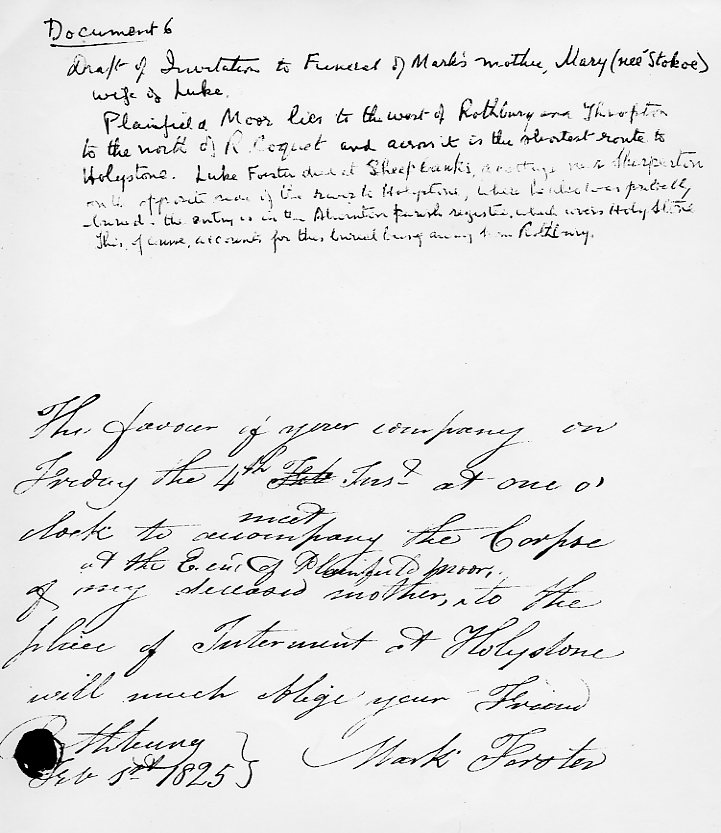 Document 6
Draft of Invitation to Funeral of Mark's mother, Mary (neé Stokoe)
wife of Luke.
Plainfield Moor lies to the west of Rothbury and Thropton
to the north of R. Coquet and across it is the shortest route to
Holystone. Luke Forster died at Sheepbanks, a cottage near Sharperton
on the opposite side of the river to Holystone, where he also was probably
buried - the entry is in the Alwinton parish register, which covers Holystone
This, of course, accounts for this burial being away from Rothbury.
The favour of your company on
Friday the 4th Feb Inst at one o'
clock to accompany the Corpse
meet
at the E. end of Plainfield moor,
of my deceased mother, to the
place of Interment at Holystone
will much oblige your Friend
Rothbury
Feb 1st 1825
Mark Forster